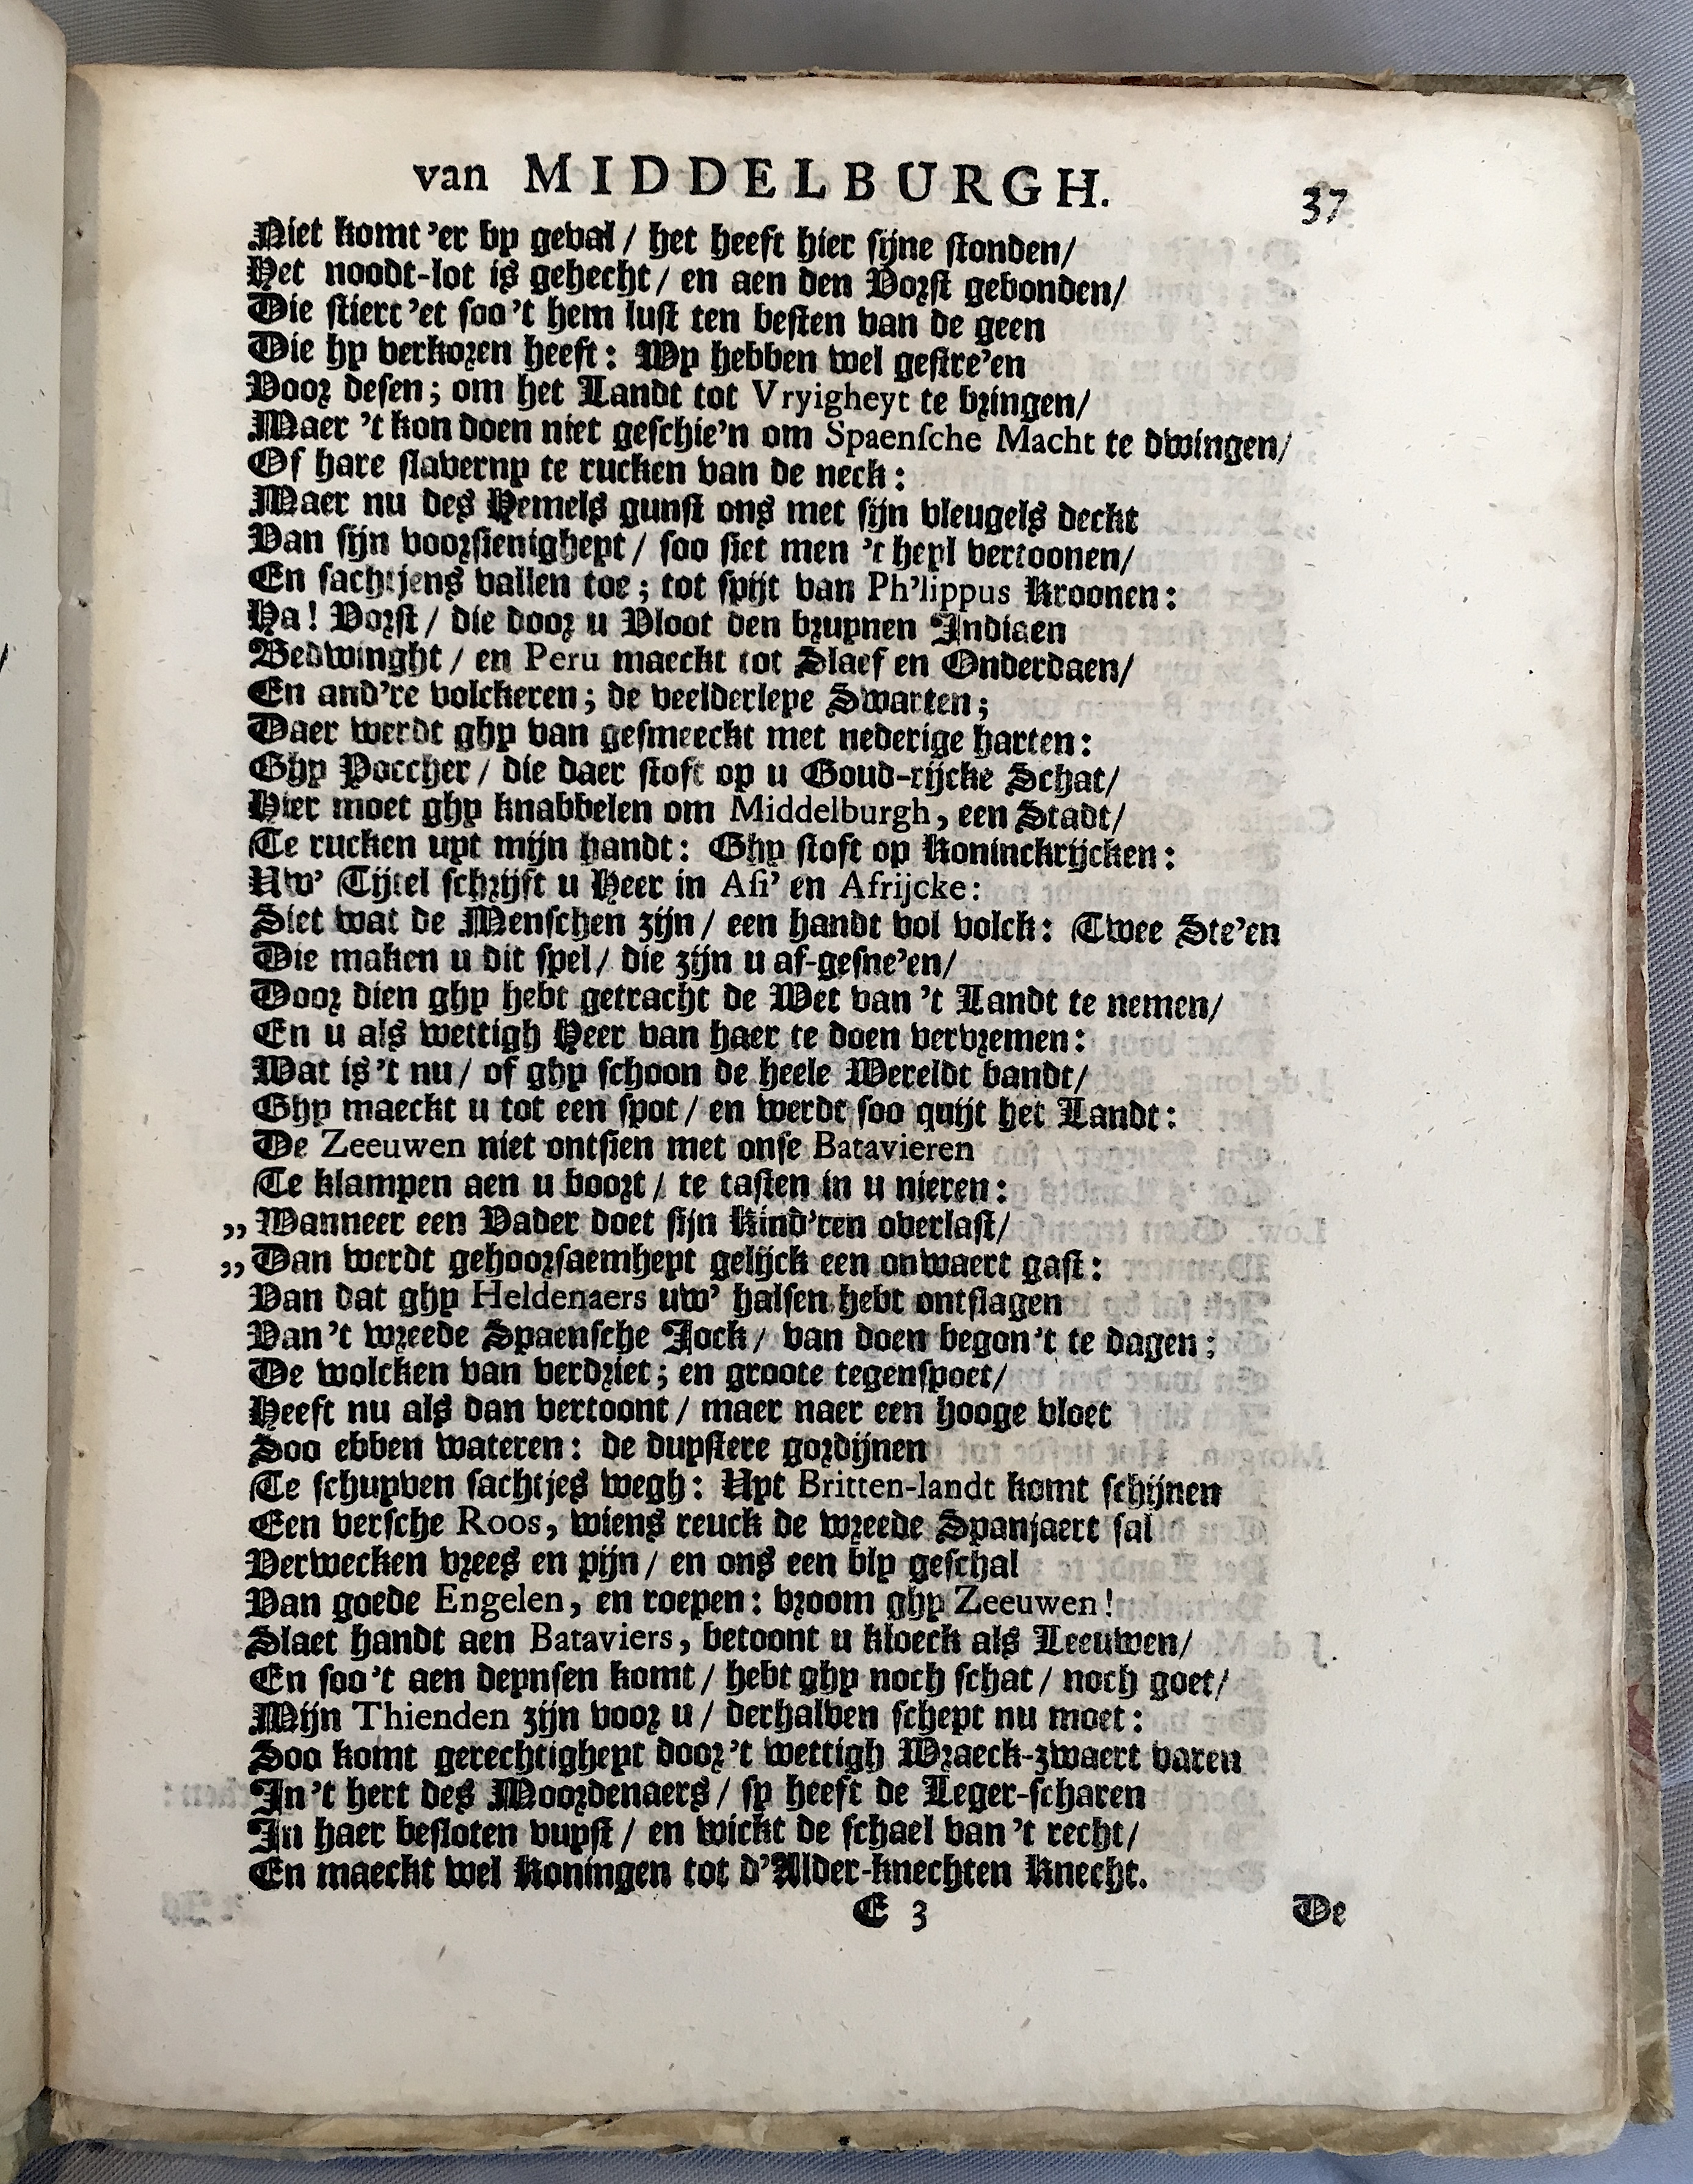 van MIDDELBURGH. 37
Niet komt 'er by geval / het heeft hier sijne stonden /
Het noodt-lot is gehecht / en aen den Vorst gebonden /
Die stiert 'et soo 't hem lust ten besten van de geen
Die hy verkoren heeft: Wy hebben wel gestre'en
Voor desen; om het Landt tot Vryigheyt te bringen /
Maer 't kon doen niet geschie'n om Spaensche Macht te dwingen /
Of hare slaverny te rucken van de neck:
Maer nu des Hemels gunst ons met sijn vleugels deckt
Van sijn voorsienigheyt / soo siet men 't heyl vertoonen /
En sachtjens vallen toe; tot spijt van Ph'lippus Kroonen:
Ha! Vorst / die door u Vloot den bruynen Indiaen
Bedwinght / en Peru maeckt tot Slaef en Onderdaen /
En and're volckeren; de veelderleye Swarten;
Daer werdt ghy van gesmeeckt met nederige harten:
Ghy Poccher / die daer stoft op u Goud-rijcke Schat /
Hier moet ghy knabbelen om Middelburgh, een Stadt /
Te rucken uyt mijn handt: Ghy stoft op Koninckrijcken:
Uw' Tijtel schrijft u Heer in Asi' en Afrijcke:
Siet wat de Menschen zijn / een handt vol volck: Twee Ste'en
Die maken u dit spel / die zijn u af-gesne'en /
Door dien ghy hebt getracht de Wet van 't Landt te nemen /
En u als wettigh Heer van haer te doen vervremen:
Wat is 't nu / of ghy schoon de heele Wereldt bandt /
Ghy maeckt u tot een spot / en werdt soo quijt het Landt:
De Zeeuwen niet ontsien met onse Batavieren
Te klampen aen u boort / te tasten in u nieren:
,, Wanneer een Vader doet sijn Kind'ren overlast /
,, Dan werdt gehoorsaemheyt gelijck een onwaert gast:
Van dat ghy Heldenaers uw' halsen hebt ontslagen
Van 't wreede Spaensche Jock / van doen begon 't te dagen;
De wolcken van verdriet; en groote tegenspoet /
Heeft nu als dan vertoont / maer naer een hooge vloet
Soo ebben wateren: de duystere gordijnen
Te schuyven sachtjes wegh: Uyt Britten-landt komt schijnen
Een versche Roos, wiens reuck de wreede Spanjaert sal
Verwecken vrees en pijn / en ons een bly geschal
Van goede Engelen, en roepen: vroom ghy Zeeuwen!
Slaet handt aen Bataviers, betoont u kloeck als Leeuwen /
En soo 't aen deynsen komt / hebt ghy noch schat / noch goet /
Mijn Thienden zijn voor u / derhalven schept nu moet:
Soo komt gerechtigheyt door 't wettigh Wraeck-zwaert varen
In 't hert des Moordenaers / sy heeft de Leger-scharen
In haer besloten vuyst / en wickt de schael van 't recht /
En maeckt wel Koningen tot d'Alder-knechten Knecht.
E 3 De